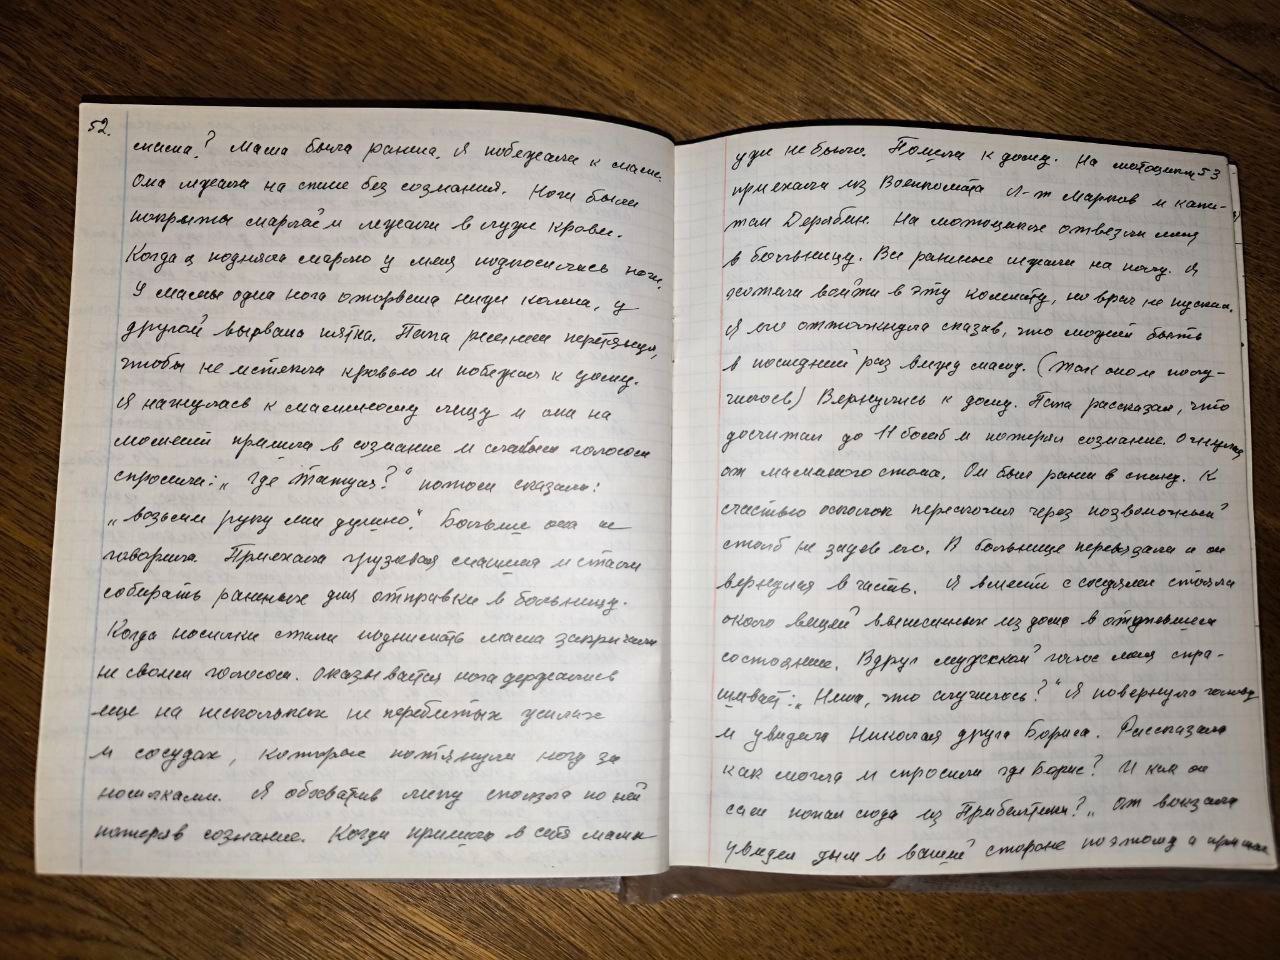 52.
мама? Мама была ранена. Я побежала к маме.
Она лежала на спине без сознания. Ноги были
покрыты марлей и лежали в луже крови.
Когда я подняла марлю у меня подкосились ноги.
У мамы одна нога оторвана ниже колена, у
другой вырвана пятка. Папа ремнем перетянул,
чтобы не истекла кровью и побежал к дому.
Я нагнулась к маминому лицу и она на
момент пришла в сознание и слабым голосом
спросила: „Где Татуля?" потом сказала:
„возьми руку мне душно". Больше она не
говорила. Приехала грузовая машина и стали
собирать раненых для отправки в больницу.
Когда носилки стали поднимать мама закричала
не своим голосом. Оказывается нога держалась
еще на нескольких не перебитых усилах
и сосудах, которые потянули ногу за
носилками. Я обхватив липу сползла по ней
потеряв сознание. Когда пришла в себя мамы
53
уже не было. Пошла к дому. На мотоцикле
приехали из Военкомата Л-т Марков и капи-
тан Дерябин. На мотоцикле отвезли меня
в больницу. Все раненые лежали на полу. Я
хотела войти в эту комнату, но врач не пускал.
Я его оттолкнула сказав, что может быть
в последний раз вижу маму. (Так оно и полу-
чилось) Вернулись к дому. Папа рассказал, что
досчитал до 11 бомб и потерял сознание. Очнулся
от маминого стона. Он был ранен в спину. К
счастью осколок перескочил через позвоночный
столб не задев его. В больнице перевязали и он
вернулся в часть. Я вместе с соседями стояла
около вещей вынесенных из дома в отупевшем
состоянии. Вдруг мужской голос меня спра-
шивает: „Нина, что случилось?" Я повернула голову
и увидела Николая друга Бориса. Рассказала
как могла и спросила где Борис? И как он
сам попал сюда из Прибалтики? „От вокзала
увидел дым в вашей стороне поэтому и пришел